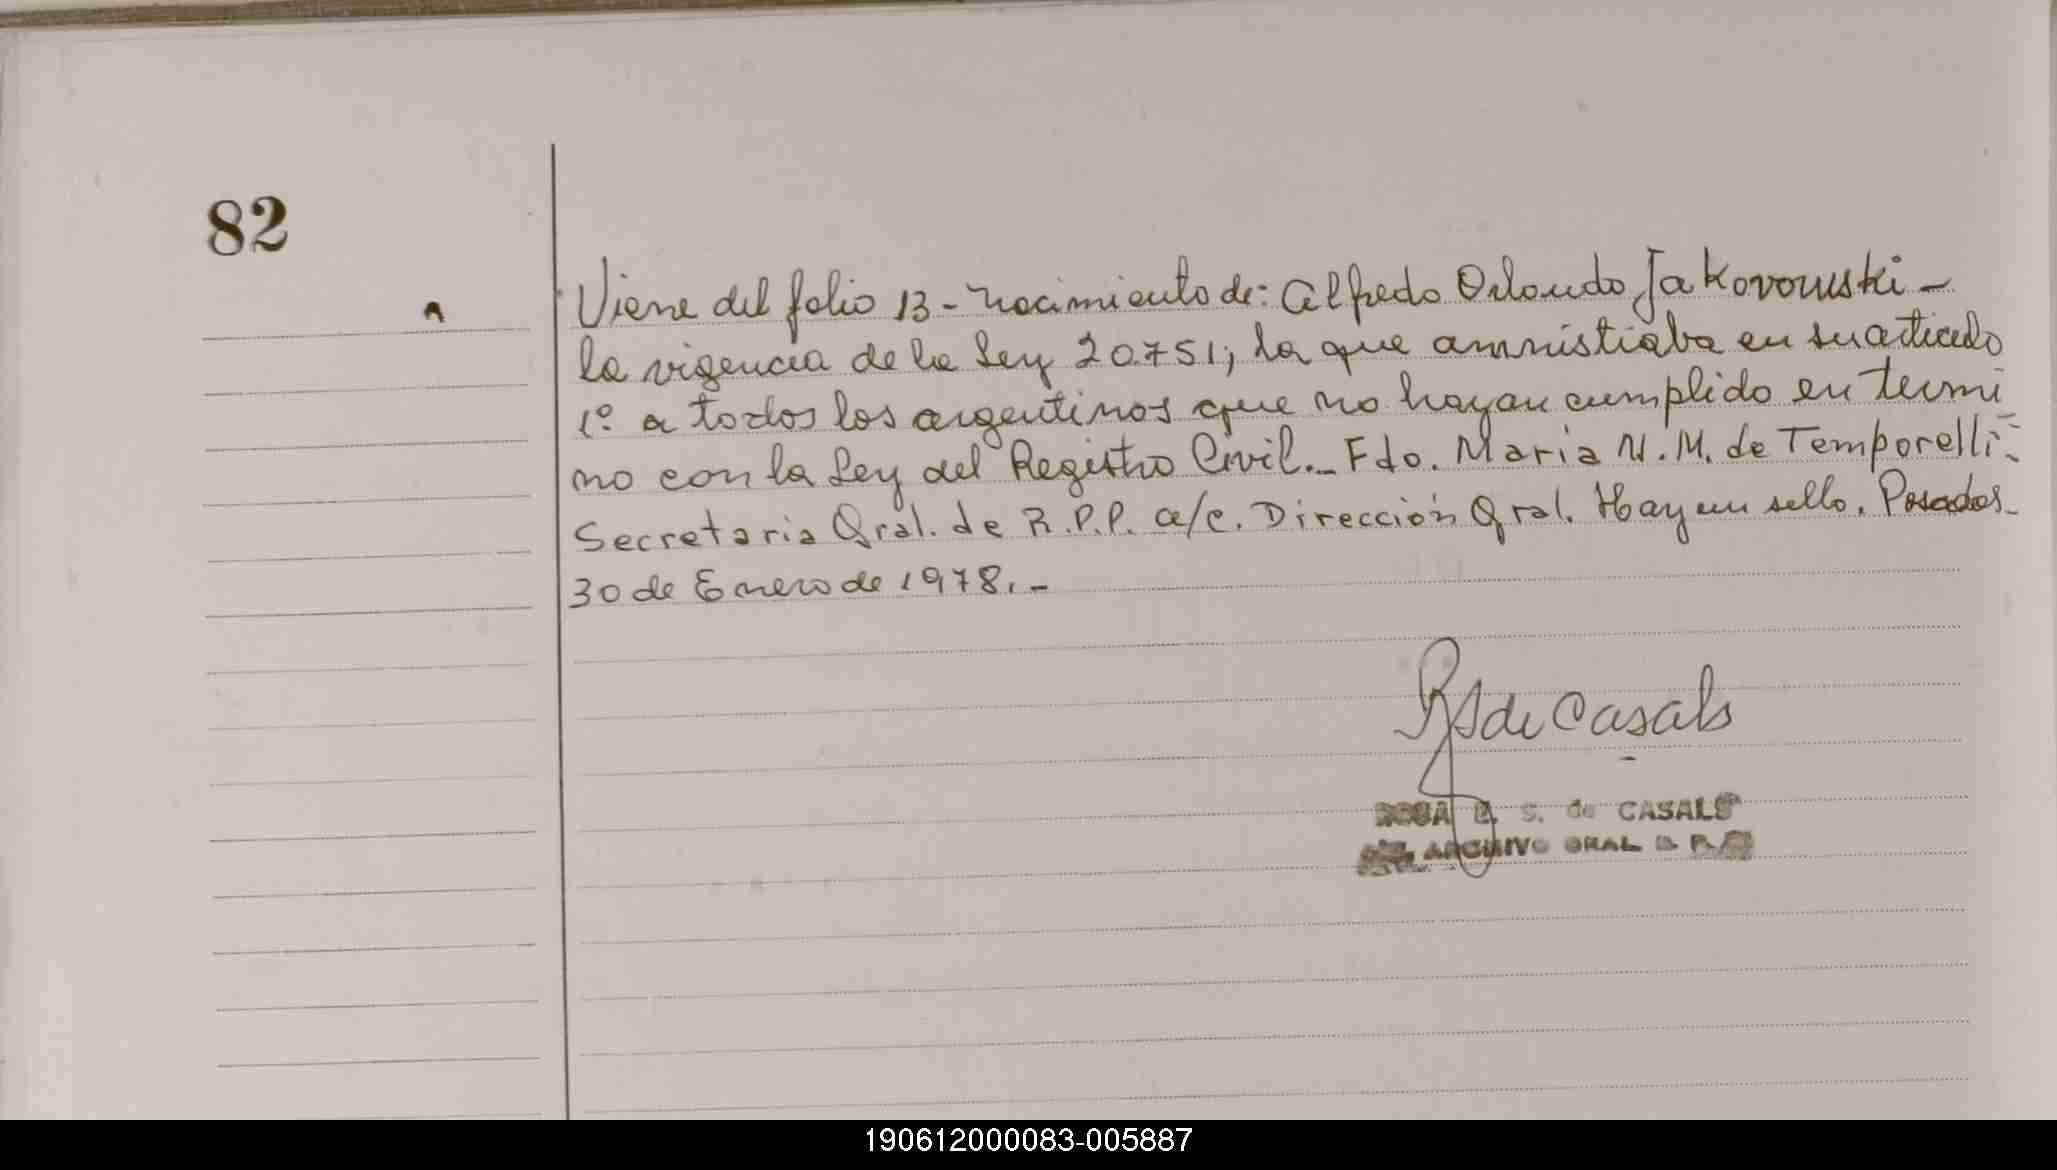 82
Viene del folio 13 - Nacimiento de: Alfredo Orlando Jakovowski -
la vigencia de la Ley 20.751, la que amnistiaba en su articulo
1º a todos los argentinos que no hayan cumplido en termi
no con la Ley del Registro Civil._ Fdo. Maria N. M. de Temporelli-
Secretaria Gral. de R.P.P. a/c. Dirección Gral. Hay un sello. Posadas-
30 de Enero de 1978.-
de Casals
ROSA E. S. de CASALS
ARCHIVO GRAL
190612000083-005887